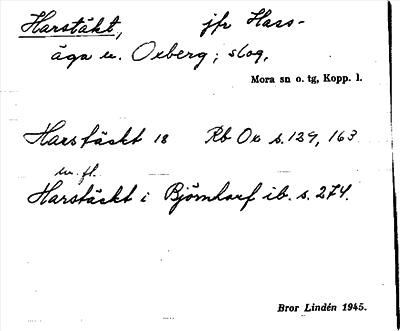 Harstäkt, jfr Hars-
äga u. Oxberg; skog,
Mora sn o. tg, Kopp. l.
Harstäckt 18 Rb Ox s. 129, 163
m. fl.
Harstäckt i Björnharf ib. s. 274.
Bror Lindén 1945.